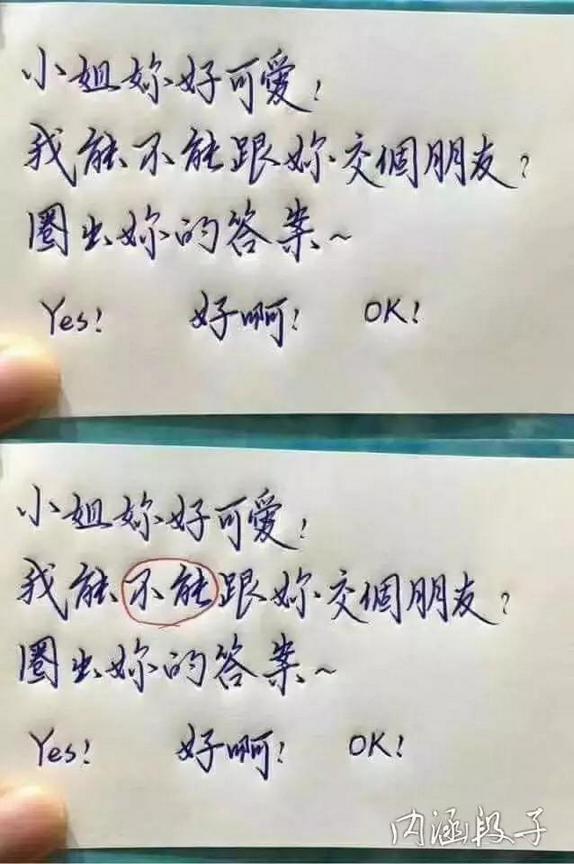 小姐妳好可愛！
我能不能跟妳交個朋友？
圈出妳的答案~
Yes! 好啊! OK!
小姐妳好可愛！
我能不能跟妳交個朋友？
圈出妳的答案~
Yes! 好啊! OK!
内涵段子